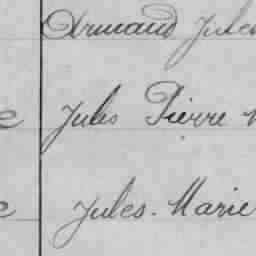 Armand Jules
Jules Pierre
Jules-Marie